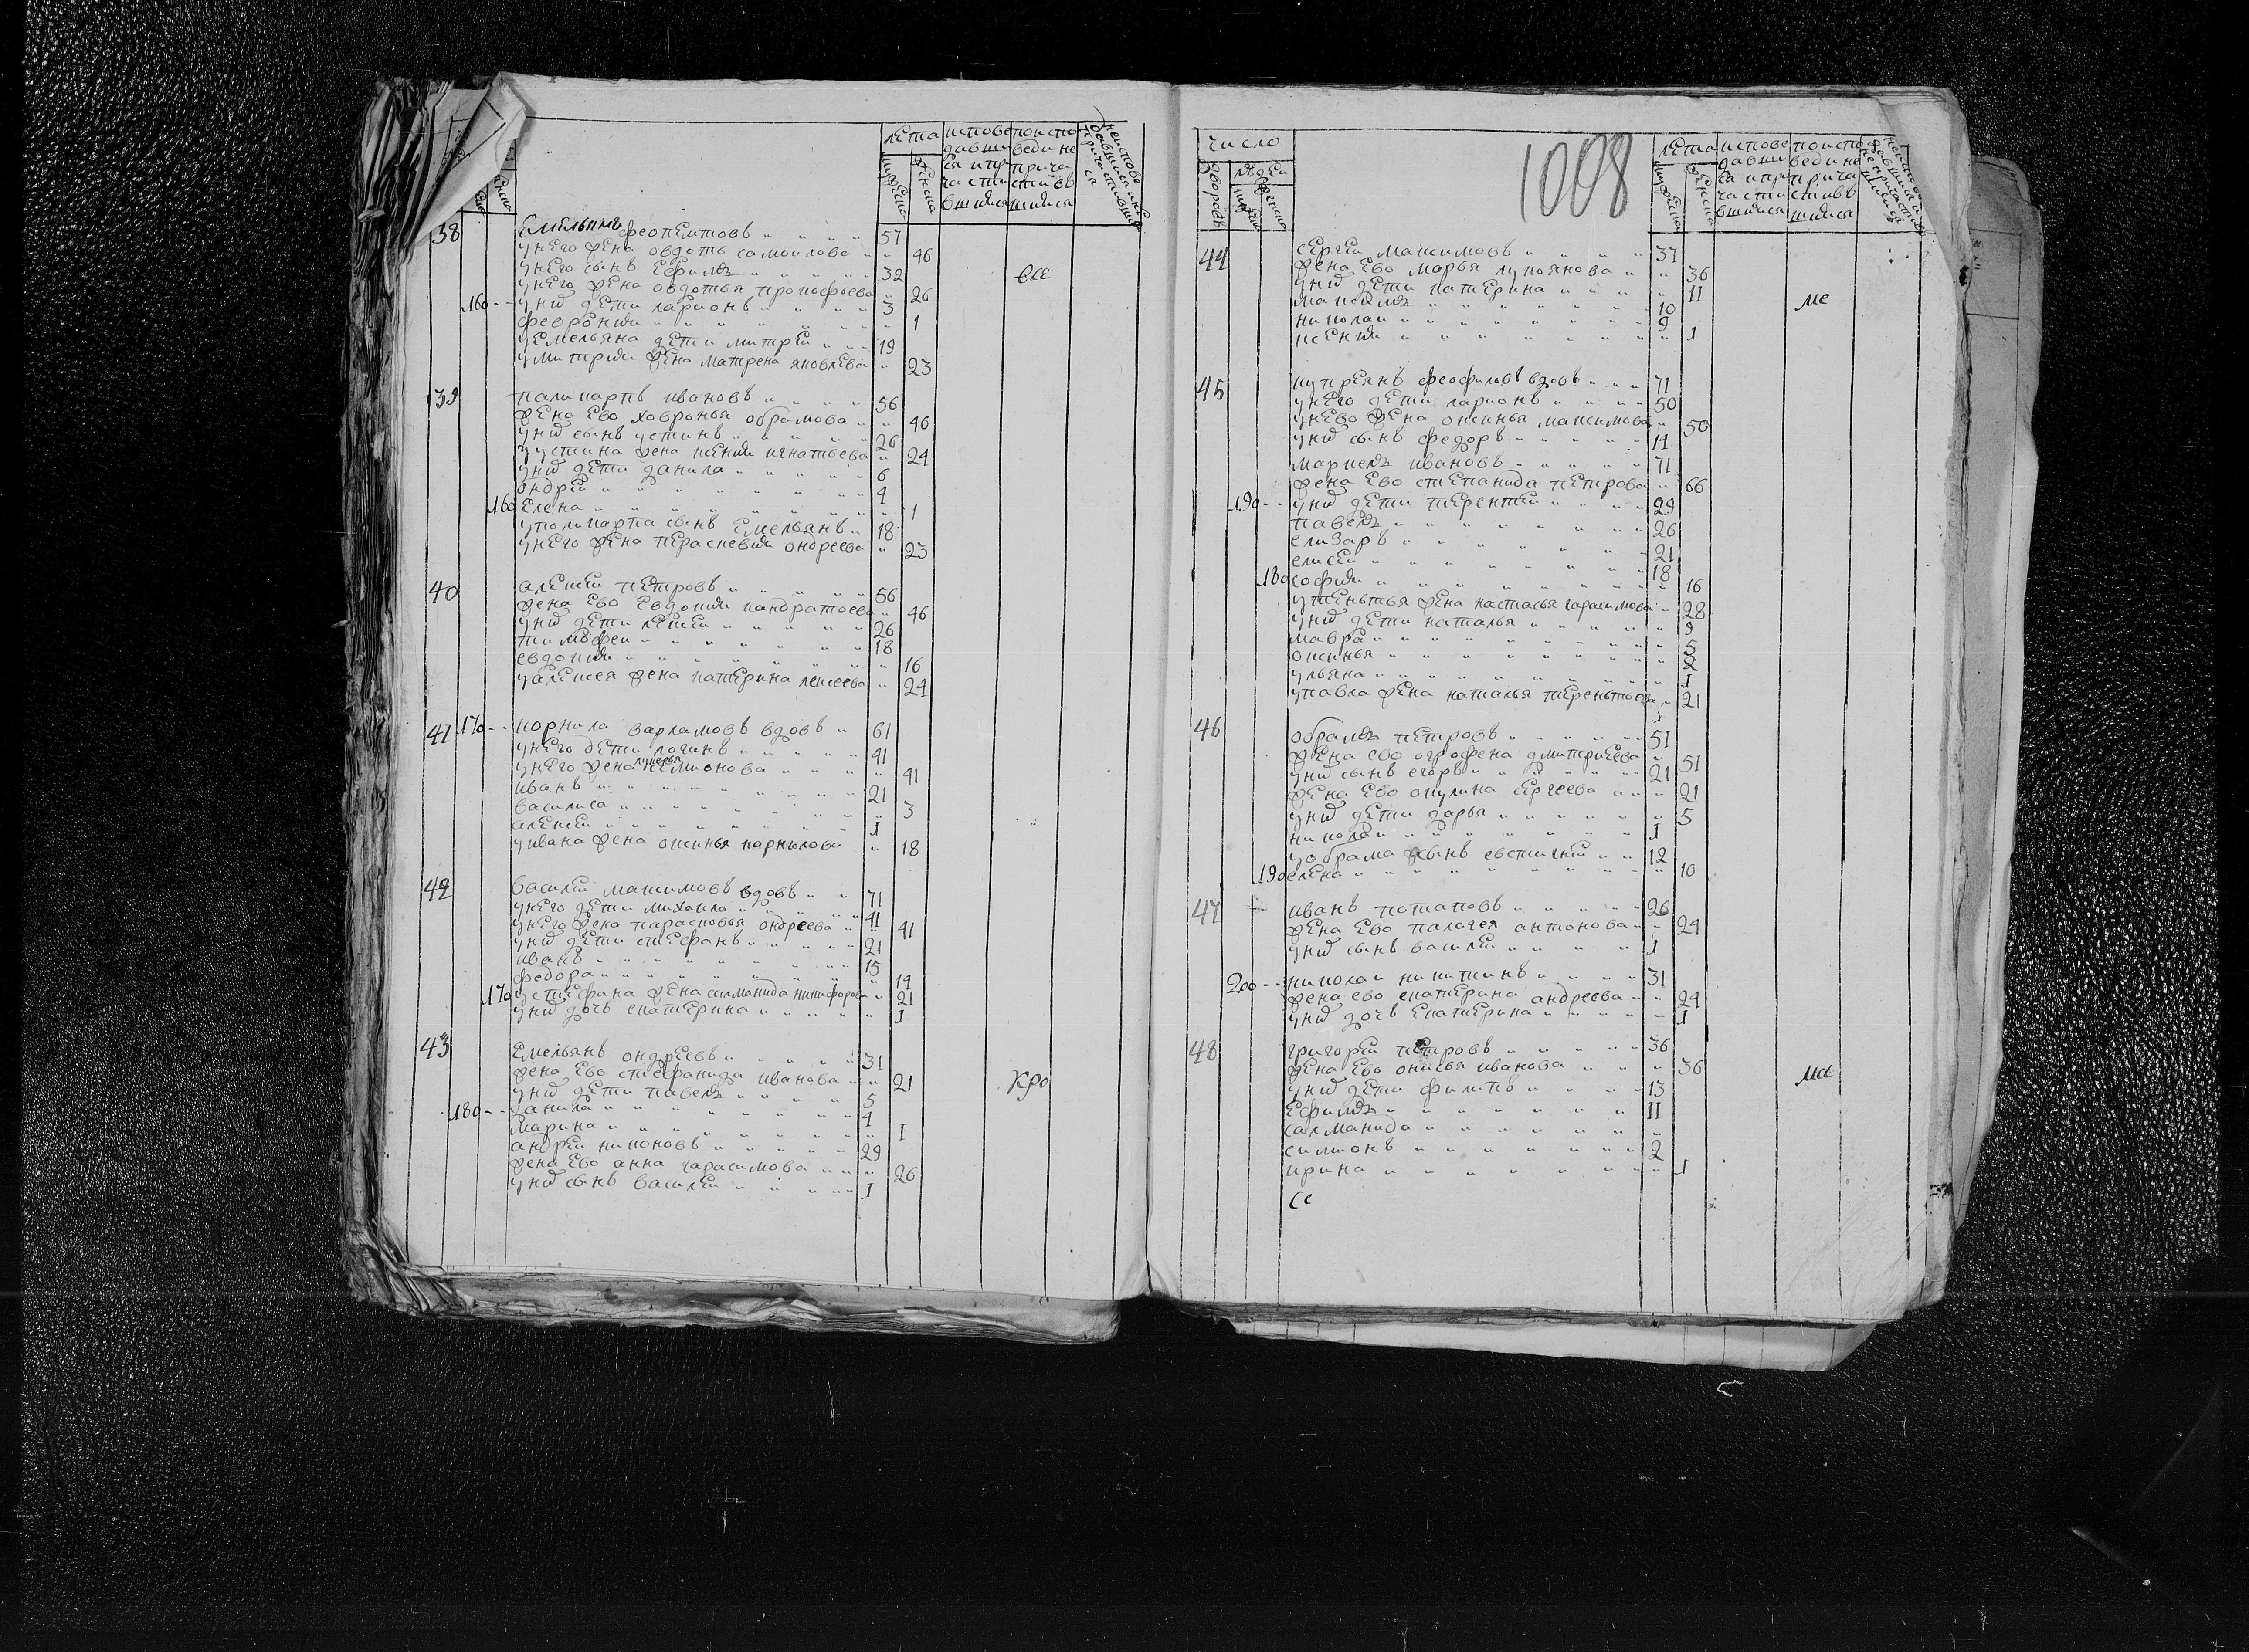 лета
исповедавшиися и причастившиися
по исповеди не причастившиися
38 Емельянъ феопемтовъ 57
у него жена овдотья самоилова 46
у него сынъ Ефимъ 32
у него жена овдотья прокофьева 26
160 у нихъ дети ларионъ 3
феврония 1
у емельяна дети митрей 19
у митрия жена матрена яковлева 23
все
39 паликарпъ ивановъ 56
жена Ево хавронья обрамова 46
у нихъ сынъ устинъ 26
у устина жена ксения игнатьева 24
у нихъ дети данила 6
ондрей 4
160 Елена 1
у поликарпа сынъ Емельянъ 18
у него жена перасковия ондреева 23
40 алексей петровъ 56
жена Ево Евдокия кандратьева 46
у нихъ дети лексей 26
тимофеи 18
евдокия 16
у алексея жена катерина лексеева 24
41 170 корнила варламовъ вдовъ 61
у него дети логинъ 41
у него жена лукерья семионова 41
иванъ 21
василиса 3
алексей 1
у ивана жена оксинья карнилова 18
42 василей максимовъ вдовъ 71
у него дети михаила 41
у него жена парасковья ондреева 41
у нихъ дети стефанъ 21
иванъ 15
федора 14
170 у стефана жена саламанида никифорова 21
у нихъ дочь екатерина 1
43 Емельянъ ондреевъ 31
жена Ево стефанида иванова 21
у нихъ дети павелъ 5
180 данила 4
марина 1
андрей никоновъ 29
жена Ево анна гарасимова 26
у нихъ сынъ василей 1
кро
1008
число
дворовъ
людей
лета
исповедавшиися и причастившиися
по исповеди не причастившиися
44 сергей максимовъ 37
жена Ево марья лукоянова 36
у нихъ дети катерина 11
максимъ 10
николаи 9
ксения 1
ме
45 куприянъ феофиловъ вдовъ 71
у него дети ларионъ 50
у нево жена оксинья максимова 50
у нихъ сынъ федоръ 14
маркелъ ивановъ 71
жена Ево степанида петрова 66
190 у нихъ дети терентей 29
павелъ 26
елизаръ 21
елисей 18
180 софия 16
у теньтья жена настасья гарасимова 28
у нихъ дети наталья 9
мавра 5
оксинья 2
ульяна 1
у павла жена наталья тереньтьева 21
46 обрамъ петровъ 51
жена ево огрофена дмитриева 51
у нихъ сынъ егоръ 21
жена Ево окулина сергеева 21
у нихъ дети дарья 5
николаи 1
у обрама сынъ евстигней 12
190 елена 10
47 иванъ потаповъ 26
жена Ево палагея антонова 24
у нихъ сынъ василей 1
200 николаи никитинъ 31
жена ево екатерина андреева 24
у нихъ дочь Екатерина 1
48 григорей петровъ 36
жена Ево онисья иванова 36
у нихъ дети филипъ 13
Ефимъ 11
саламанида
симионъ 2
ирина 1
се